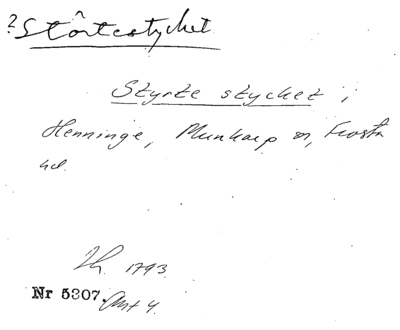 ? Stôrtestycket
Styrte stycket i
Henninge, Munkarp sn, Frosta
hd.
1793.
Nr 5307. Akt 4.